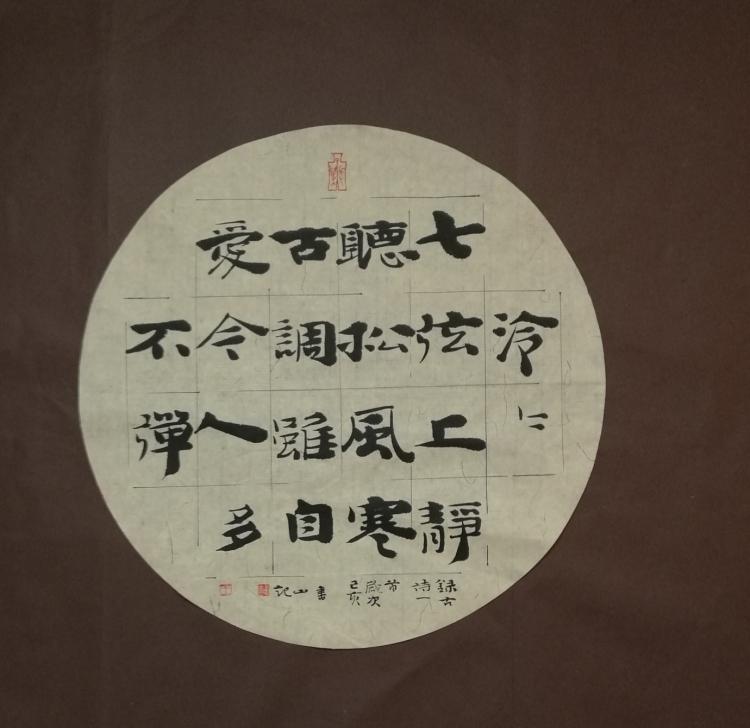 泠〻
七弦上靜
聽松風寒
古調雖自
愛令人多
不彈
錄古
詩一
首
歲次
己亥
書山記